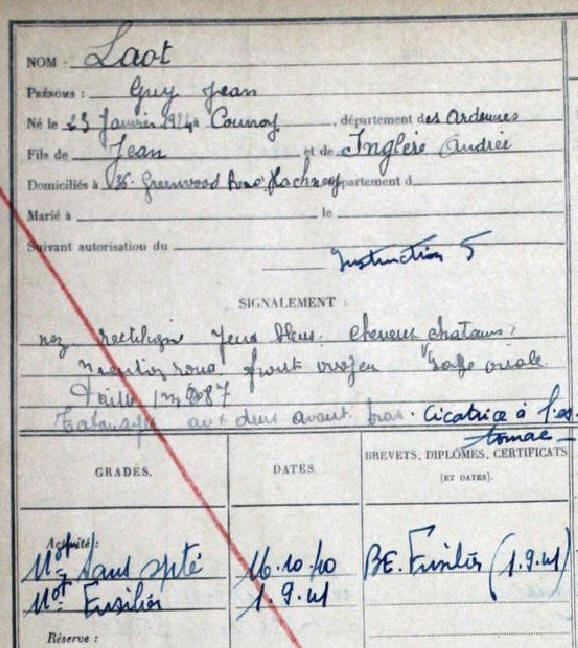 NOM : Laot
PRÉNOMS : Guy Jean
Né le 23 Janvier 1924 à Counoy, département des Ardennes
Fils de Jean et de Inglère Andrée
Domiciliés à 36. Greenwood Road Hackney département d
Marié à le
Suivant autorisation du
Instruction 5
SIGNALEMENT :
nez rectiligne yeux bleus. cheveux chatains,
menton rond front moyen Visage ovale
Taille 1m
Tatouage aux deux avant bras. Cicatrice à l'es-
tomac
GRADES. DATES. BREVETS, DIPLÔMES, CERTIFICATS
(ET DATES).
Activité :
Mot Sans spté 16.10.40 BE. Fusilier (1.9.41)
Mot Fusilier 1.9.41
Réserve :